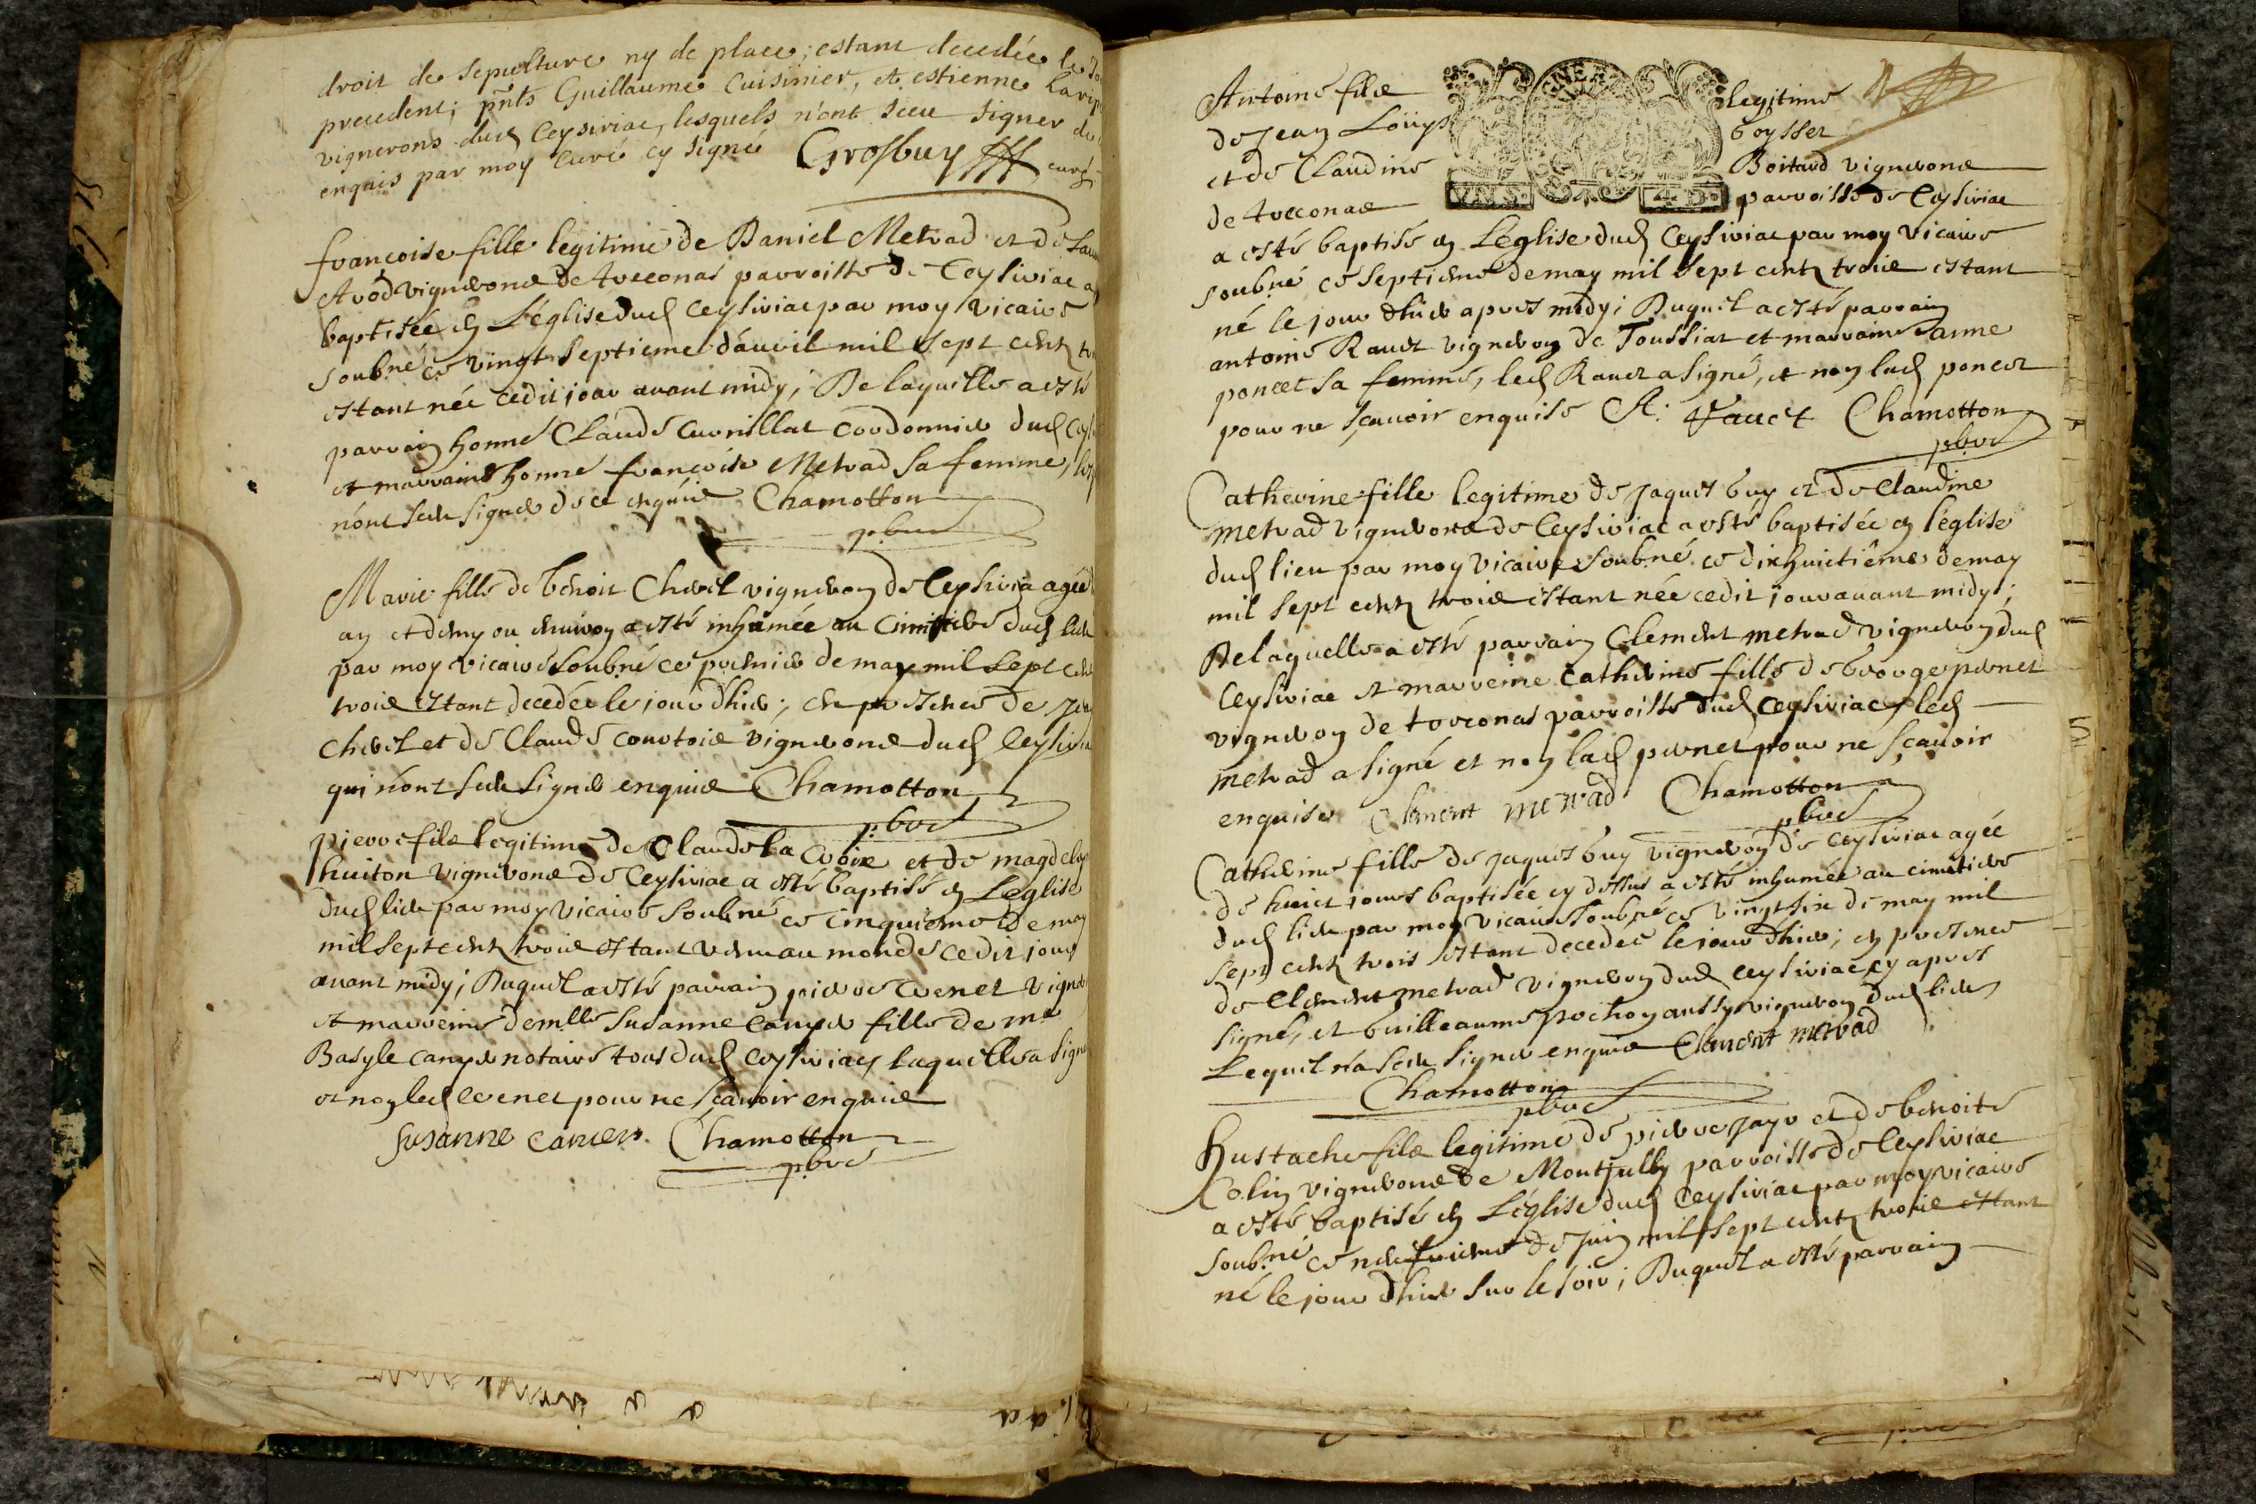 droit de sepulture ny de place; estant decedée le
precedent; pñts Guillaume Cuisinier, et estienne
vignerons dud Ceyseriac, lesquels n'ont sceu signer de
enquis par moy curé cy signé Grosbuy curé
francoise fille legitime de Daniel Metrad et de
Avod vignerons de treconas parroisse de Ceyseriac a
baptisée en L'église dud Ceyseriac par moy vicaire
soubné ce vingt septieme d'auril mil sept centz
estant née cedit jour auant midy; De laquelle a esté
parrain honné Claude Curnillat Cordonnier dud
et marraine honné francoise Metrad sa femme,
n'ont sceu signer de ce enquis Chamotton
pbre
Marie fille de benoit Chevel vigneron de Ceyseria agée
an et demy ou enuiron a esté inhumée au Cimitiere dud lieu
par moy vicaire soubné ce premier de may mil sept
trois estant decedée le jour d'hier; en presence de
Chevel et de Claude Courtois vignerons dud
qui n'ont sceu signer enquis Chamotton
pbre
pierre fils legitime de Claude la Croix et de
huiton vignerons de Ceyseriac a esté baptisé en L'eglise
dud lieu par moy vicaire soubné ce cinquieme de may
mil sept centz trois estant venu au monde cedit jour
auant midy; Duquel a esté parrain pierre
et marreine demlle Susanne Canyer fille de me
Basyle Canyer notaire tous dud Ceyseriac laquelle a signé
et non led pour ne sçauoir enquis
susanne canier Chamotton
pbre
Antoine fils legitime
de Jean Loüys Goysset
et de Claudine Boitard vignerons
de treconas parroisse de Ceyseriac
a esté baptisé en L'eglise dud Ceyseriac par moy vicaire
soubné ce septieme de may mil sept centz trois estant
né le jour d'hier apres midy; Duquel a esté parrain
antoine Rauet vigneron de Toussiat et marraine anne
poncet sa femme, led Rauet a signé, et non lad poncet
pour ne sçauoir enquise A: Chamotton
pbre
Catherine fille legitime de Jaques buy et de Claudine
metrad vignerons de Ceyseriac a esté baptisée en l'église
dud lieu par moy vicaire soubné ce dixhuictiême de may
mil sept centz trois estant née cedit jour auant midy;
De laquelle a esté parrain Clement metrad vigneron dud
Ceyseriac et marreine Catherine fille de George pernet
vigneron de treconas parroisse dud Ceyseriac led
metrad a signé et non lad pernet pour ne sçauoir
enquise Clement metrad Chamotton
pbre
Catherine fille de Jaques buy vigneron de Ceyseriac agée
de huict jours baptisée cy dessus a esté inhumée au cimetiere
dud lieu par moy vicaire soubné ce vingt six de may mil
sept centz trois estant decedée le jour d'hier; en presence
de Clement metrad vigneron dud Ceyseriac cy apres
signé, et Guilleaume pochon aussy vigneron dud lieu
Lequel n'a sceu signer enquis Clement metrad
Chamotton
pbre
Eustache fils legitime de pierre Jayr et de benoite
Colin vignerons de Montjully parroisse de Ceyseriac
a esté baptisé en L'église dud Ceyseriac par moy vicaire
soubné ce neufvieme de Juin mil sept centz trois estant
né le jour d'hier sur le soir; Duquel a esté parrain